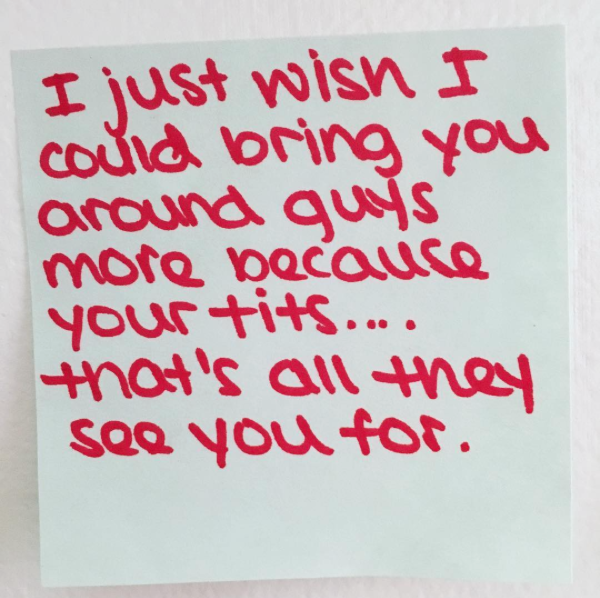 I just wish I
could bring you
around guys
more because
your tits....
that's all they
see you for.